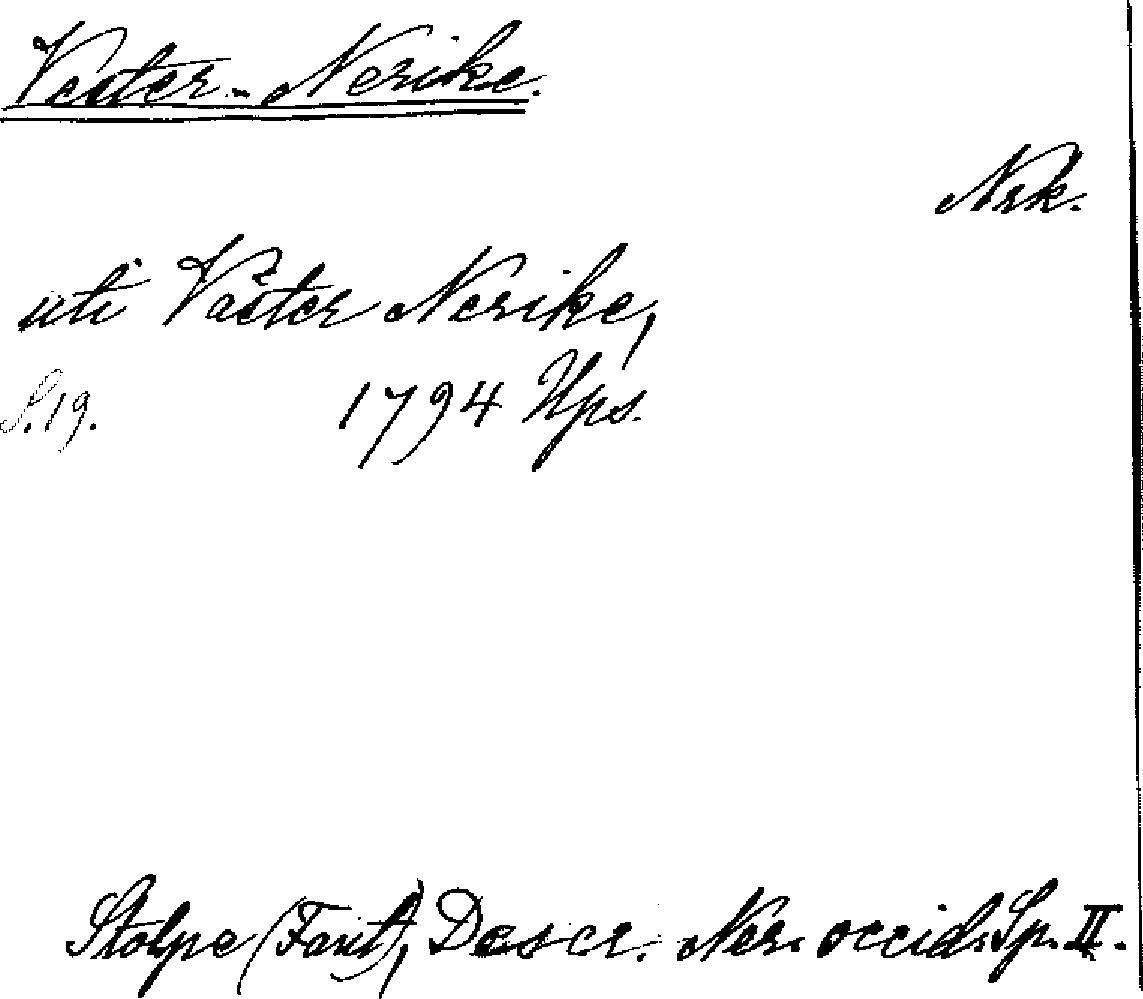 Vester-Nerike.
Nrk.
uti Väster Nerike,
S. 19. 1794 Ups.
Stolpe (Fant), Descr. Ner. occid. Sp. II.